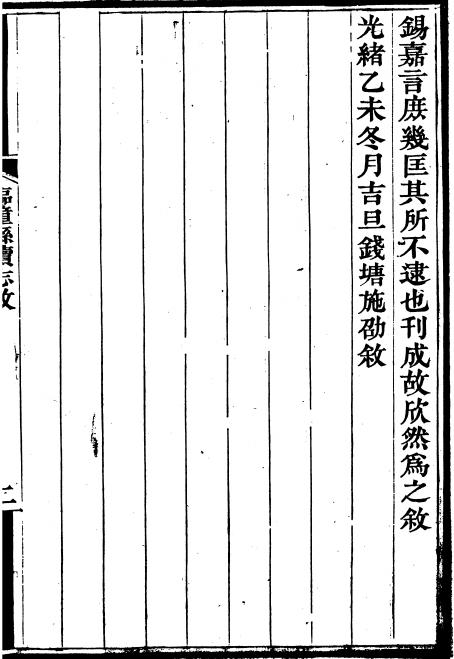 錫嘉言庶幾匡其所不逮也刊成故欣然爲之敘
光緒乙未冬月吉旦錢塘施劭敘
臨潼縣續志敘
二